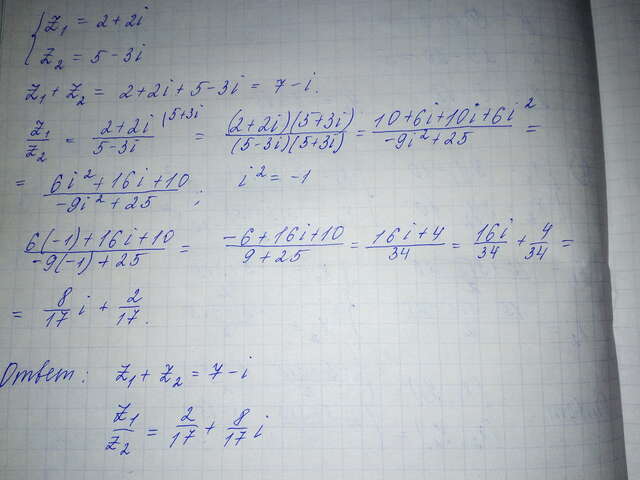 { z₁ = 2 + 2i
z₂ = 5 - 3i
z₁ + z₂ = 2 + 2i + 5 - 3i = 7 - i.
z₁/z₂ = (2+2i)/(5-3i) |5+3i = ((2+2i)(5+3i))/((5-3i)(5+3i)) = (10+6i+10i+6i²)/(-9i²+25) =
= (6i²+16i+10)/(-9i²+25); i² = -1
(6(-1)+16i+10)/(-9(-1)+25) = (-6+16i+10)/(9+25) = (16i+4)/34 = 16i/34 + 4/34 =
= 8/17 i + 2/17.
Ответ: z₁ + z₂ = 7 - i
z₁/z₂ = 2/17 + 8/17 i